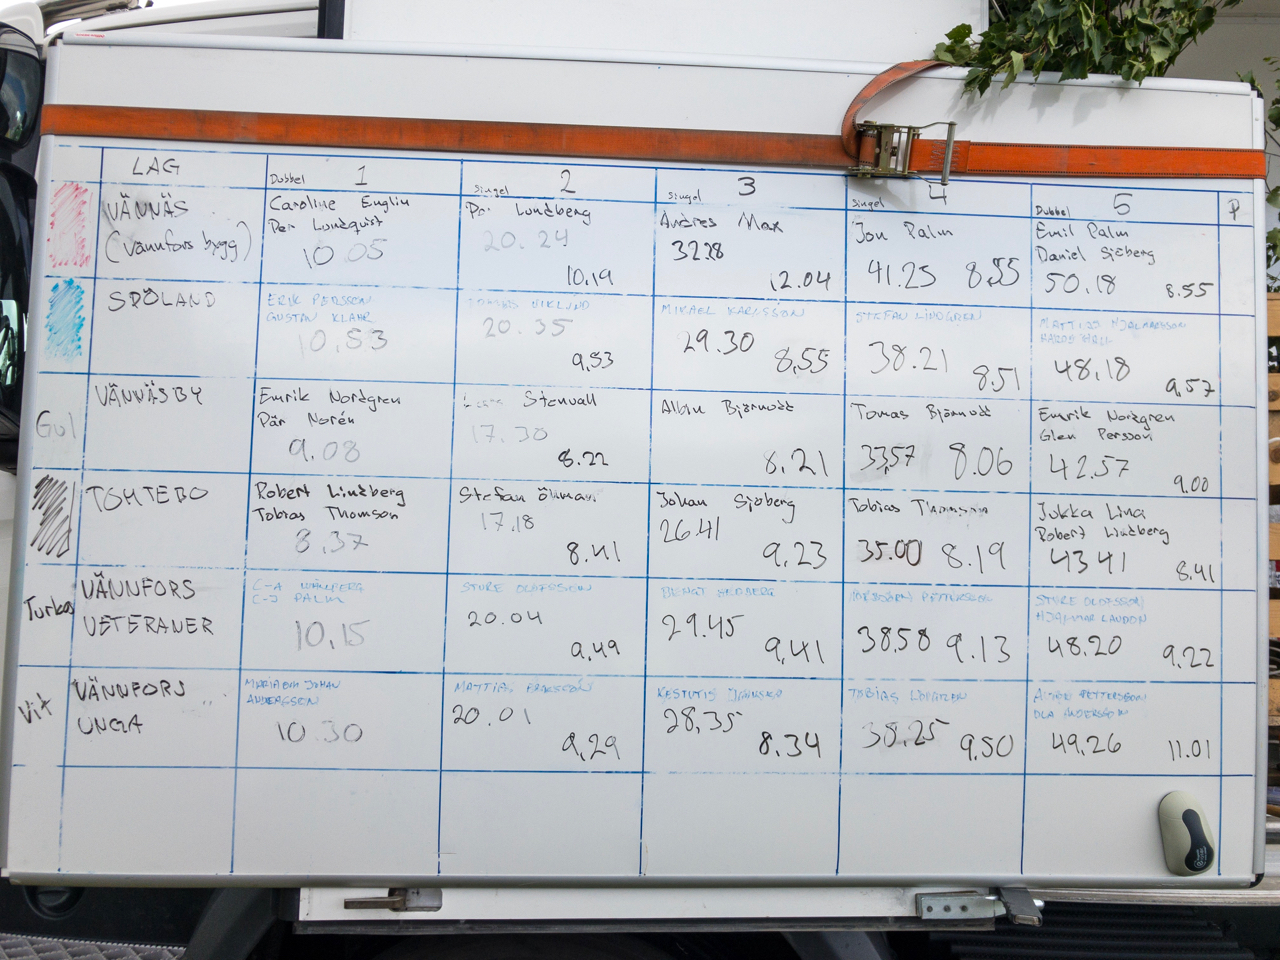 LAG
Dubbel 1
Singel 2
Singel 3
Singel 4
Dubbel 5
P
VÄNNÄS
(Vännfors bygg)
Caroline Englin
Per Lundquist
10 05
Lundberg
20.24
10,19
Andres Max
3228
12.04
Jon Palm
41.25 8,55
Emil Palm
Daniel Sjöberg
50.18 8.55
SPÖLAND
ERIK PERSSON
GUSTAV KLAAR
10,53
NIKLUND
20.35
9,53
MIKAEL KARLSSON
29.30
8,55
STEFAN LINDGREN
38.21
8,51
MATTIAS HJALMARSSON
48,18
9,57
Gul
VÄNNÄSBY
Emrik Nordgren
Pär Norén
9.08
Stenvall
17.30
8.22
Albin Björnodd
8,21
Tomas Björnodd
33,57 8.06
Emrik Nordgren
Glen Persson
42.57
9.00
TOMTEBO
Robert Lindberg
Tobias Thomson
8.37
Stefan Öhman
17.18
8.41
Johan Sjöberg
26.41
9,23
Tobias Thomson
35.00 8.19
Jukka Lina
Robert Lindberg
43 41
8.41
Turkos
VÄNNFORS
VETERANER
C-J PALM
10,15
STURE OLOFSSON
20.04
9,49
BENGT
29.45
9,41
PETTERSSON
38.58 9.13
STURE OLOFSSON
HJALMAR LAUDON
48.20
9.22
Vit
VÄNNFORS
UNGA
MARIA OCH JOHAN
ANDERSSON
10.30
MATTIAS
20.01
9,29
KESTUTIS
28,35
8.34
TOBIAS
38.25
9,50
PETTERSSON
OLA ANDERSSON
49,26
11.01